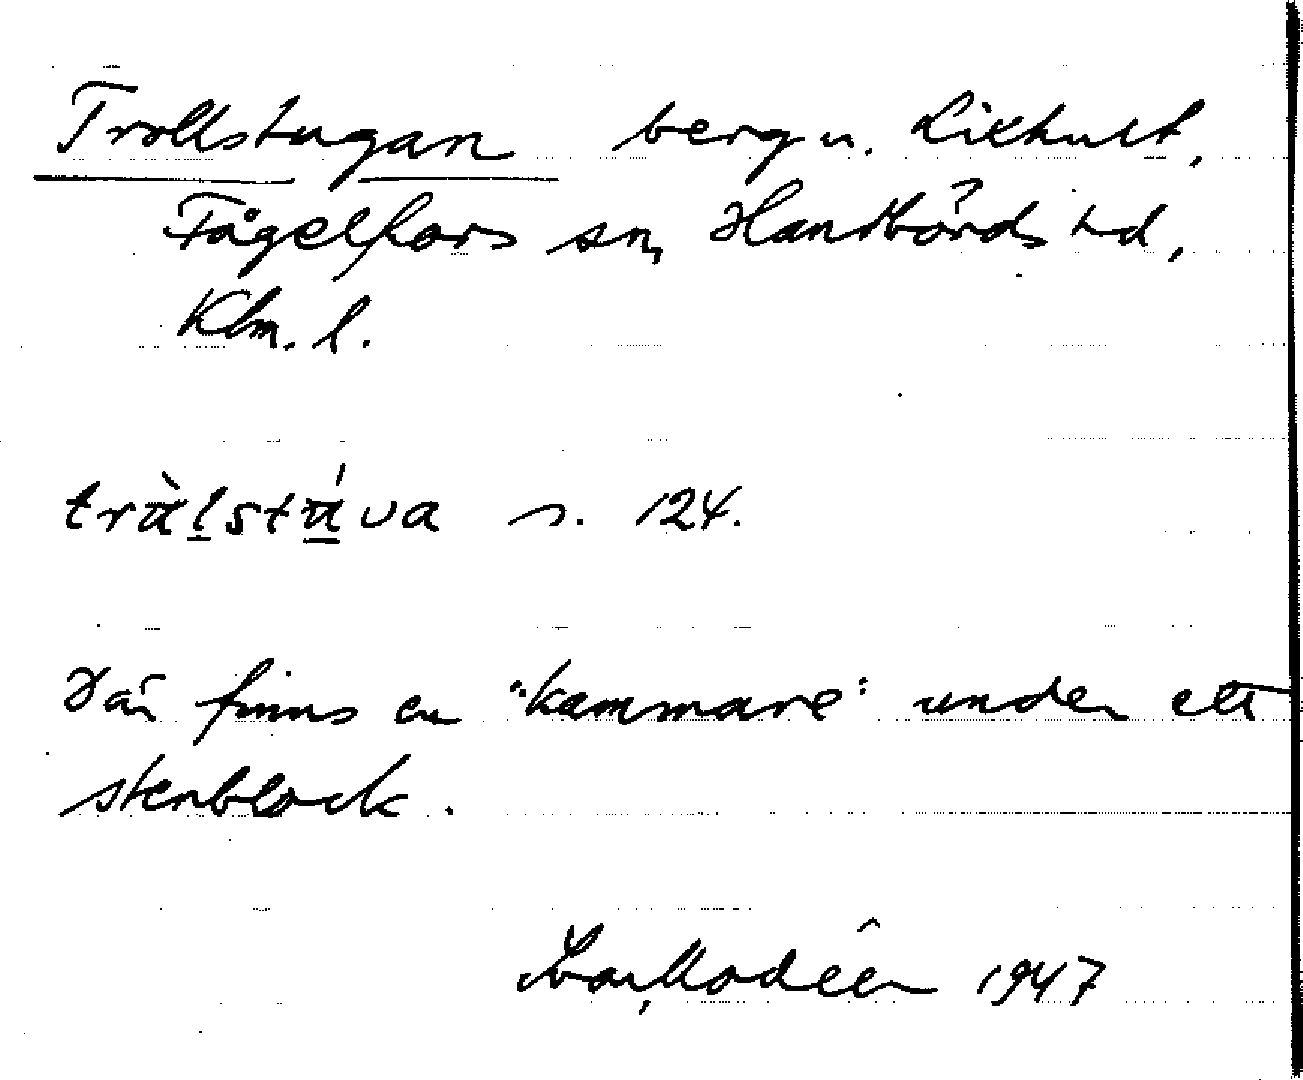 Trollstugan berg u. Lixhult,
Fågelfors sn, Handbörds hd,
Klm. l.
tràlstáva s. 124.
Där finns en "kammare" under ett
stenblock.
Ivar Modéer 1947